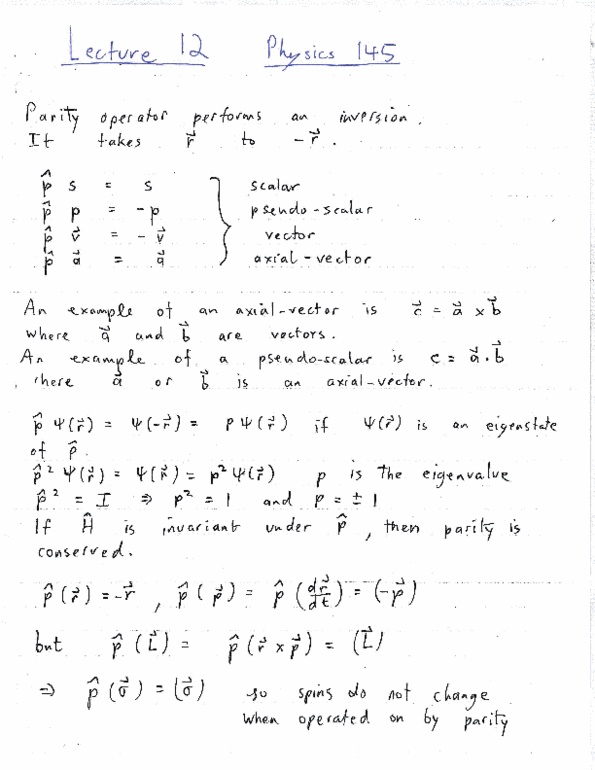 Lecture 12 Physics 145
Parity operator performs an inversion.
It takes r⃗ to -r⃗.
p̂ s = s scalar
p̂ p = -p pseudo-scalar
p̂ v⃗ = -v⃗ vector
p̂ a⃗ = a⃗ axial-vector
An example of an axial-vector is c⃗ = a⃗ × b⃗
where a⃗ and b⃗ are vectors.
An example of a pseudo-scalar is c = a⃗ · b⃗
, here a⃗ or b⃗ is an axial-vector.
p̂ Ψ(r⃗) = Ψ(-r⃗) = p Ψ(r⃗) if Ψ(r⃗) is an eigenstate
of p̂.
p̂² Ψ(r⃗) = Ψ(r⃗) = p² Ψ(r⃗) p is the eigenvalue
p̂² = I ⇒ p² = 1 and p = ± 1
If Ĥ is invariant under p̂, then parity is
conserved.
p̂ (r⃗) = -r⃗ , p̂ (p⃗) = p̂ (dr⃗/dt) = (-p⃗)
but p̂ (L⃗) = p̂ (r⃗ × p⃗) = (L⃗)
⇒ p̂ (σ⃗) = (σ⃗) so spins do not change
when operated on by parity